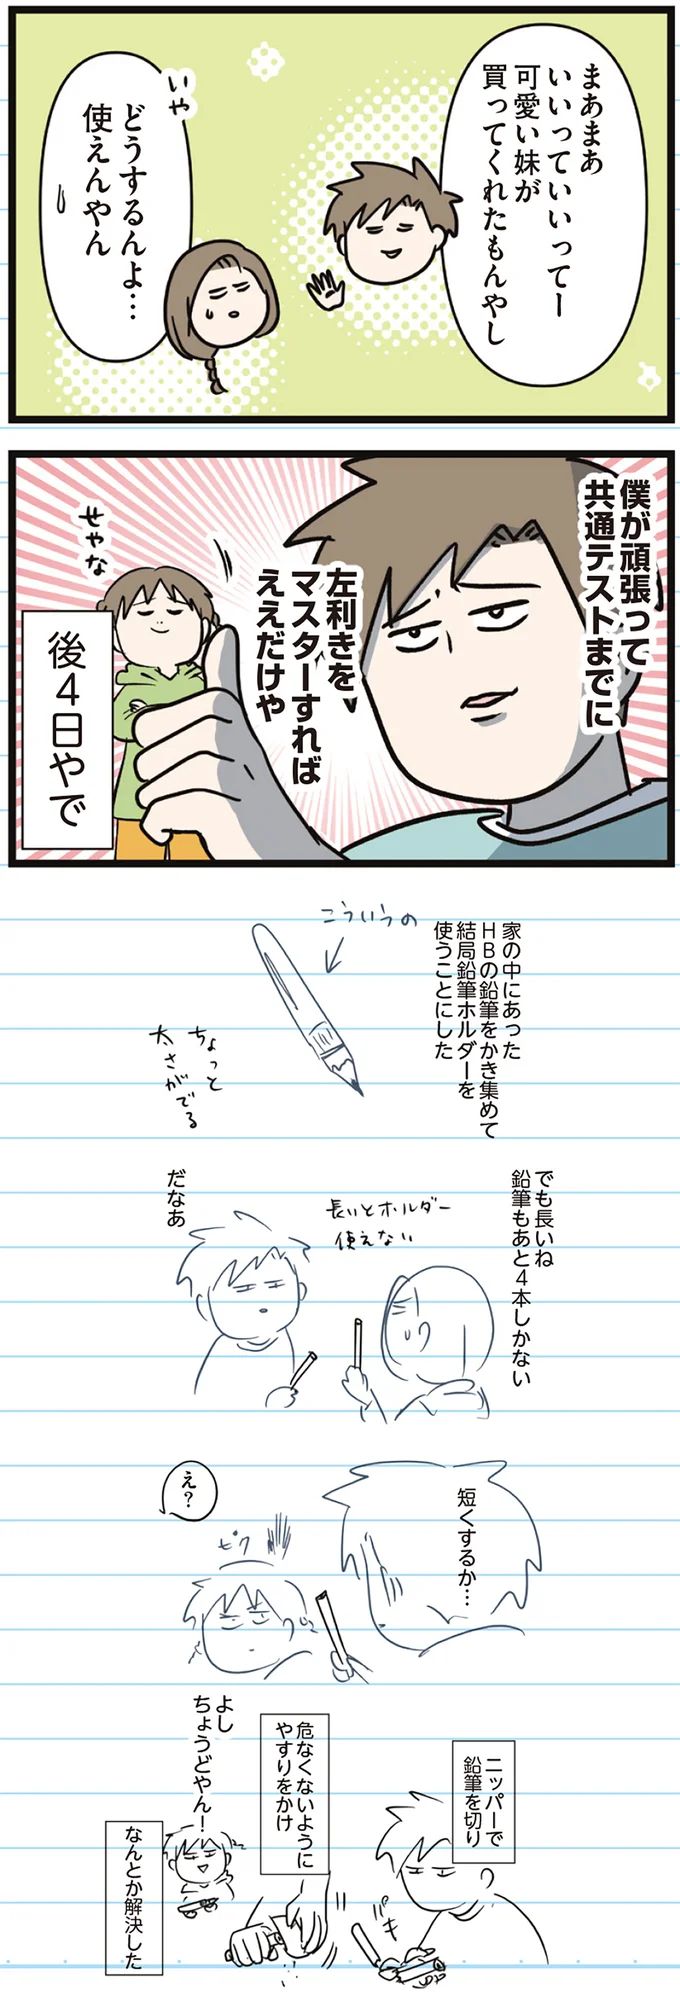 まあまあ
いいっていいってー
可愛い妹が
買ってくれたもんやし
いや
どうするんよ…
使えんやん
僕が頑張って
共通テストまでに
左利きを
マスターすれば
ええだけや
せやな
後4日やで
家の中にあった
HBの鉛筆をかき集めて
結局鉛筆ホルダーを
使うことにした
こういうの
ちょっと
太さがでる
でも長いね
鉛筆もあと4本しかない
長いとホルダー
使えない
だなあ
短くするか…
え?
ピク
ニッパーで
鉛筆を切り
パキ
危なくないように
やすりをかけ
よし
ちょうどやん!
なんとか解決した